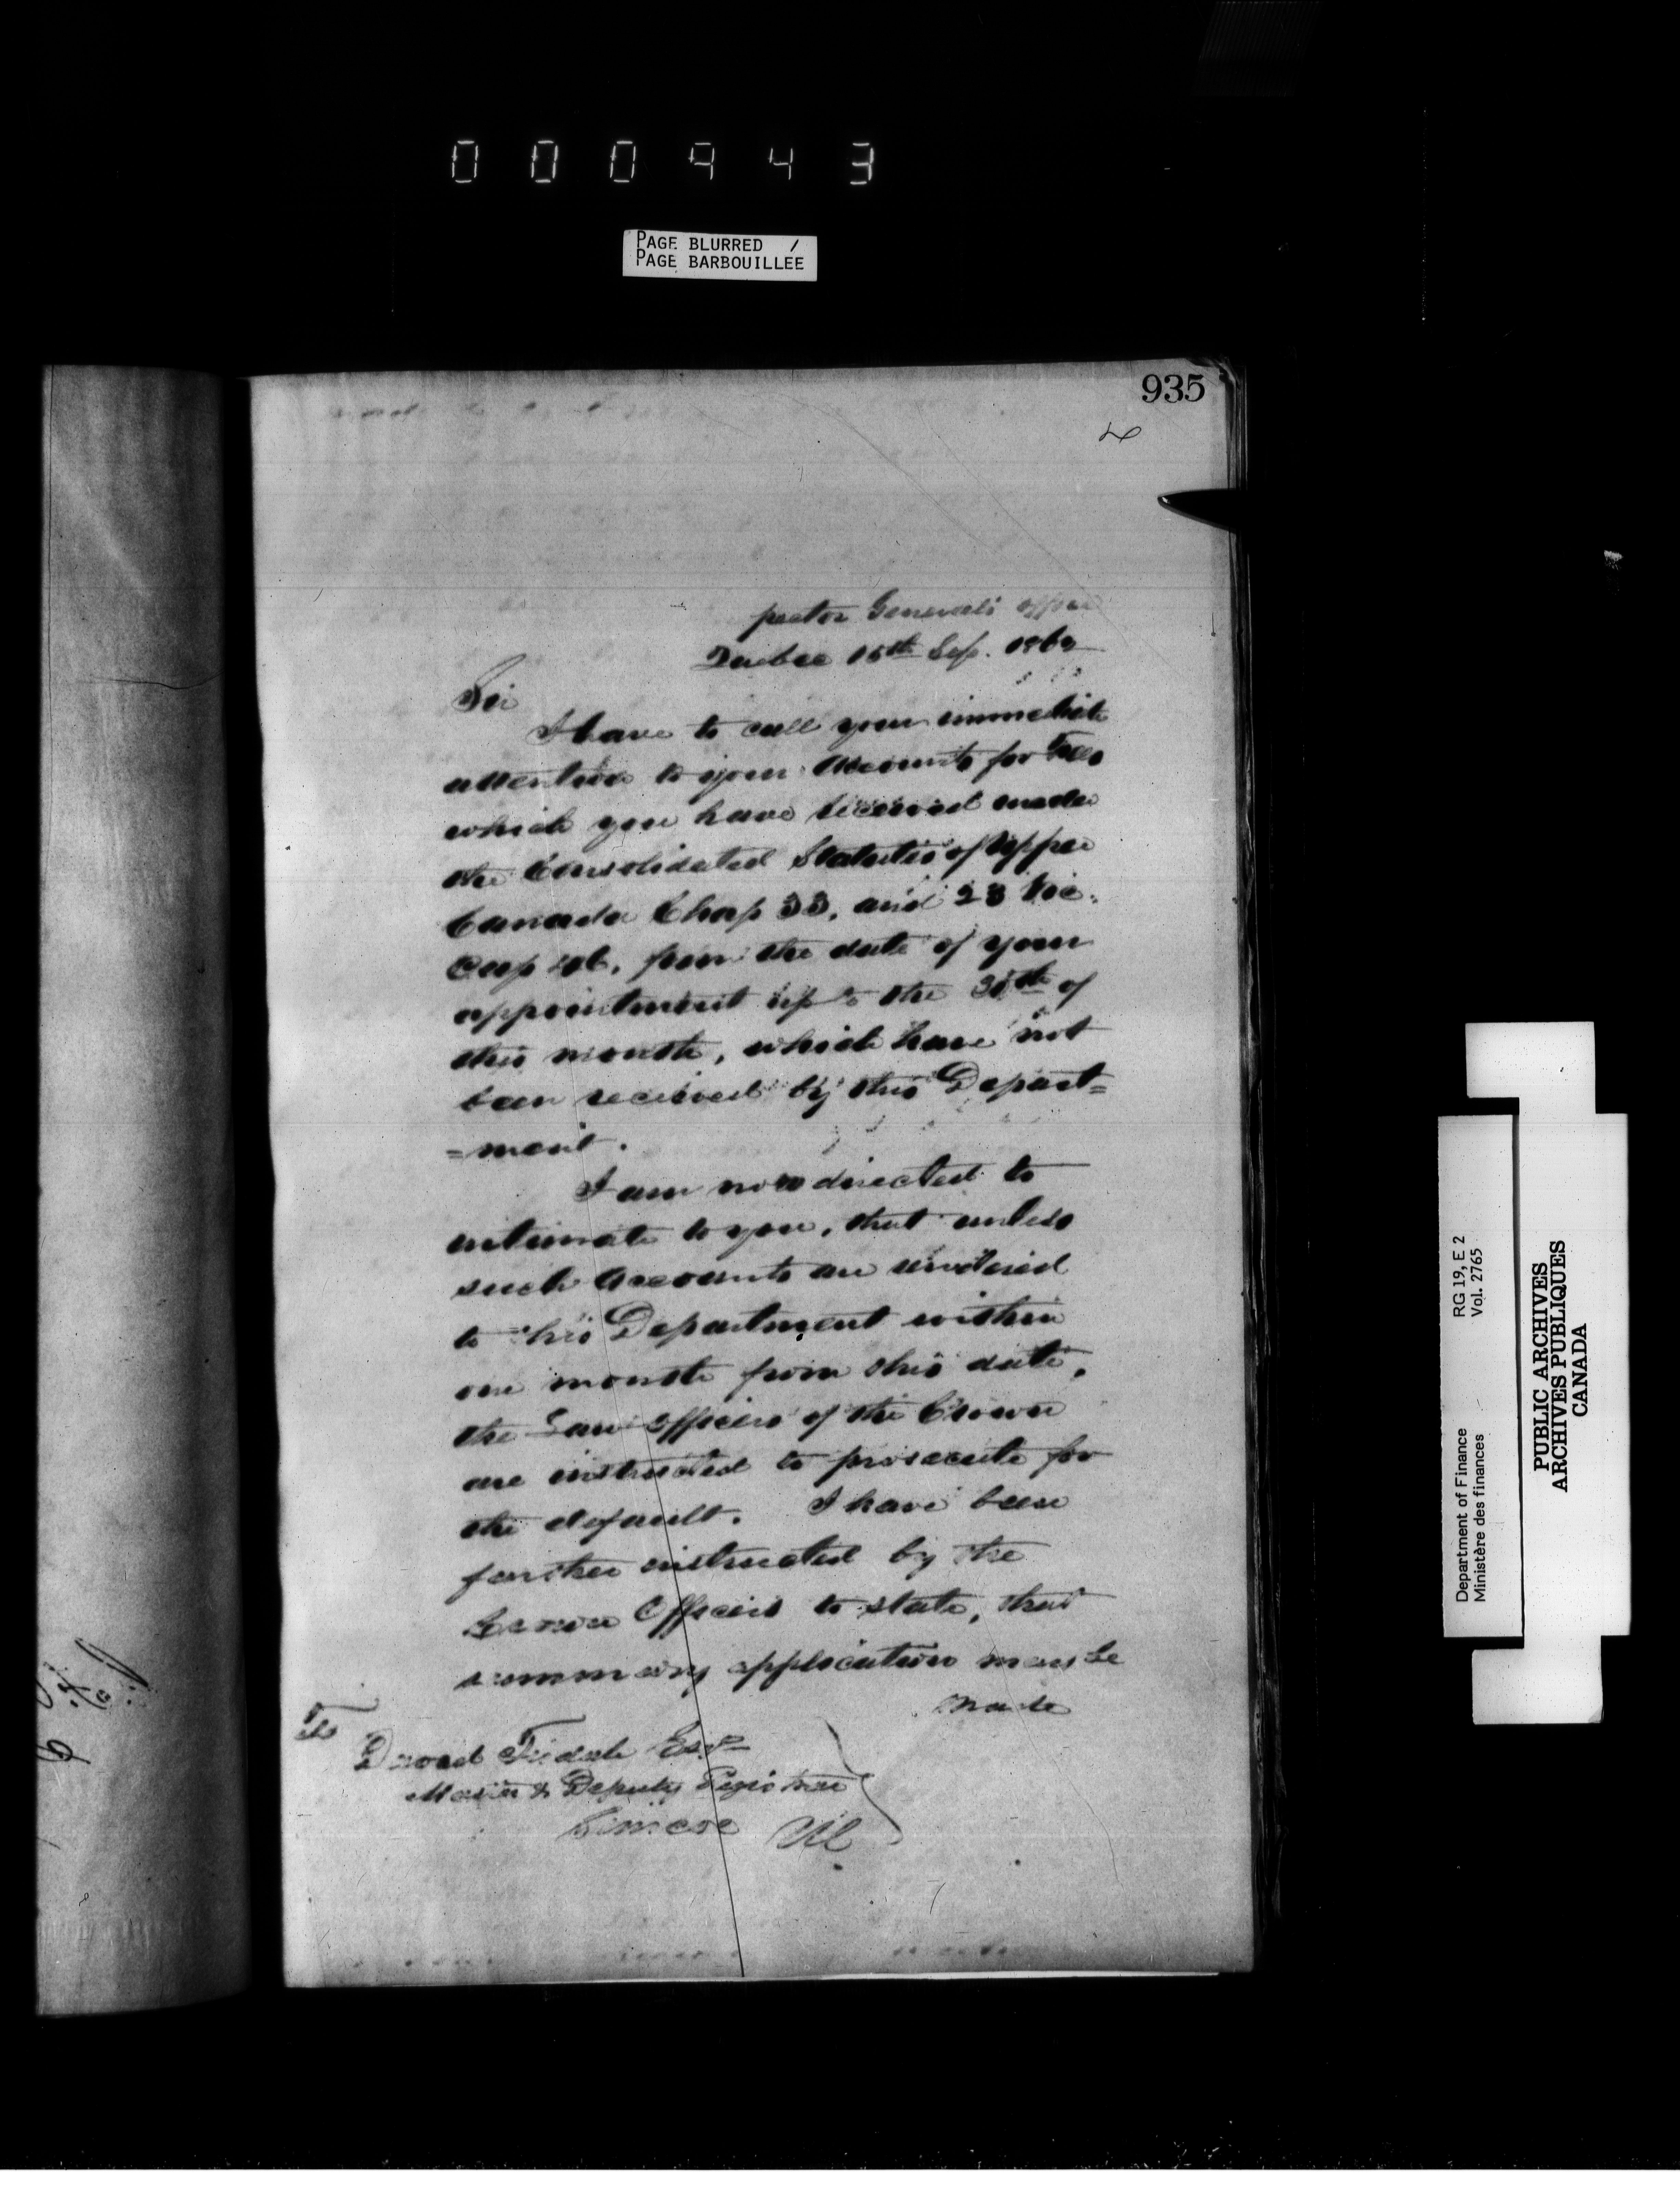 000943
PAGE BLURRED /
PAGE BARBOUILLEE
935
pector Generals Office
Quebec 15th Sep. 1862
Sir
I have to call your immediate
attention to your Accounts for Fees
which you have received under
the Consolidated Statutes of Upper
Canada Chap 33, and 23 Vic.
Cap, from the date of your
appointment up to the 30th of
this month, which have not
been received by this Depart=
=ment.
I am now directed to
intimate to you, that unless
such Accounts are rendered
to this Department within
one month from this date,
the Law Officers of the Crown
are instructed to prosecute for
the default. I have been
further instructed by the
Crown Officers to state, that
summary application may be
made
To
Tisdale Esqr
Master & Deputy Registrar
Simcoe
Department of Finance RG 19, E 2
Ministère des finances Vol. 2765
PUBLIC ARCHIVES
ARCHIVES PUBLIQUES
CANADA